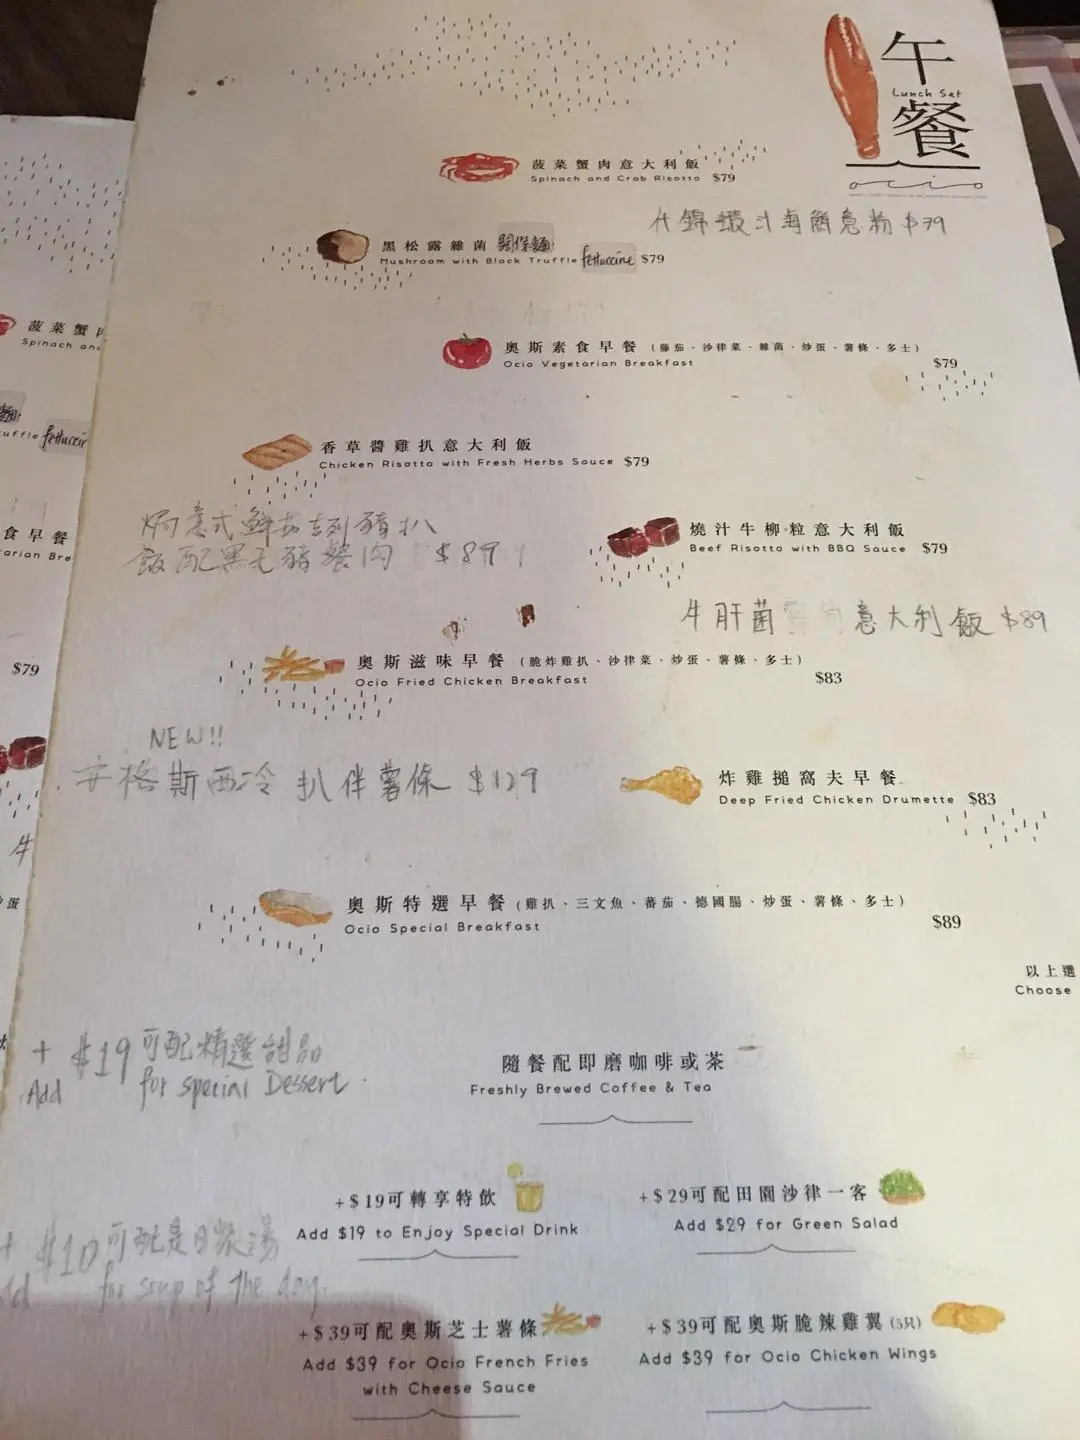 午餐
Lunch Set
ocio
菠菜蟹肉意大利飯
Spinach and Crab Risotto $79
什錦蝦汁海鮮意粉 $79
黑松露雜菌 闊條麵
Mushroom with Black Truffle fettuccine $79
奧斯素食早餐 (藤茄、沙律菜、雜菌、炒蛋、薯條、多士)
Ocio Vegetarian Breakfast $79
香草醬雞扒意大利飯
Chicken Risotto with Fresh Herbs Sauce $79
焗意式鮮茄吉列豬扒
飯配黑毛豬餐肉 $89
燒汁牛柳粒意大利飯
Beef Risotto with BBQ Sauce $79
牛肝菌 意大利飯 $89
奧斯滋味早餐 (脆炸雞扒、沙律菜、炒蛋、薯條、多士)
Ocio Fried Chicken Breakfast $83
NEW!!
安格斯西冷扒伴薯條 $129
炸雞搥窩夫早餐
Deep Fried Chicken Drumette $83
奧斯特選早餐 (雞扒、三文魚、蕃茄、德國腸、炒蛋、薯條、多士)
Ocio Special Breakfast $89
以上選
Choose
+ $19 可配精選甜品
Add for special Dessert
隨餐配即磨咖啡或茶
Freshly Brewed Coffee & Tea
+$19可轉享特飲
Add $19 to Enjoy Special Drink
+$29可配田園沙律一客
Add $29 for Green Salad
+ $10 可配是日餐湯
Add for soup of the day.
+$39可配奧斯芝士薯條
Add $39 for Ocio French Fries
with Cheese Sauce
+$39可配奧斯脆辣雞翼 (5只)
Add $39 for Ocio Chicken Wings
菠菜蟹肉
Spinach and
麵
uffle fettuccin
食早餐
arian Bre
$79
牛
炒蛋